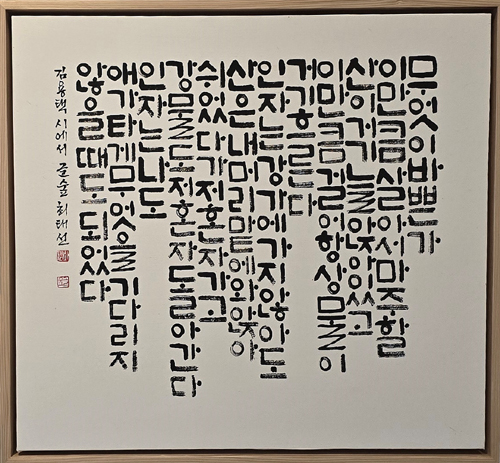 무엇이바쁜가
이만큼살아서마주할
산이거기늘앉아있고
이만큼걸어항상물이
거기흐른다
인자는강가에가지않아도
산은내머리맡에와앉아
쉬었다가저혼자가고
강물도저혼자돌아간다
인자는나도
애가타게무엇을기다리지
않을때도되었다
김용택 시에서 글숲 최태선